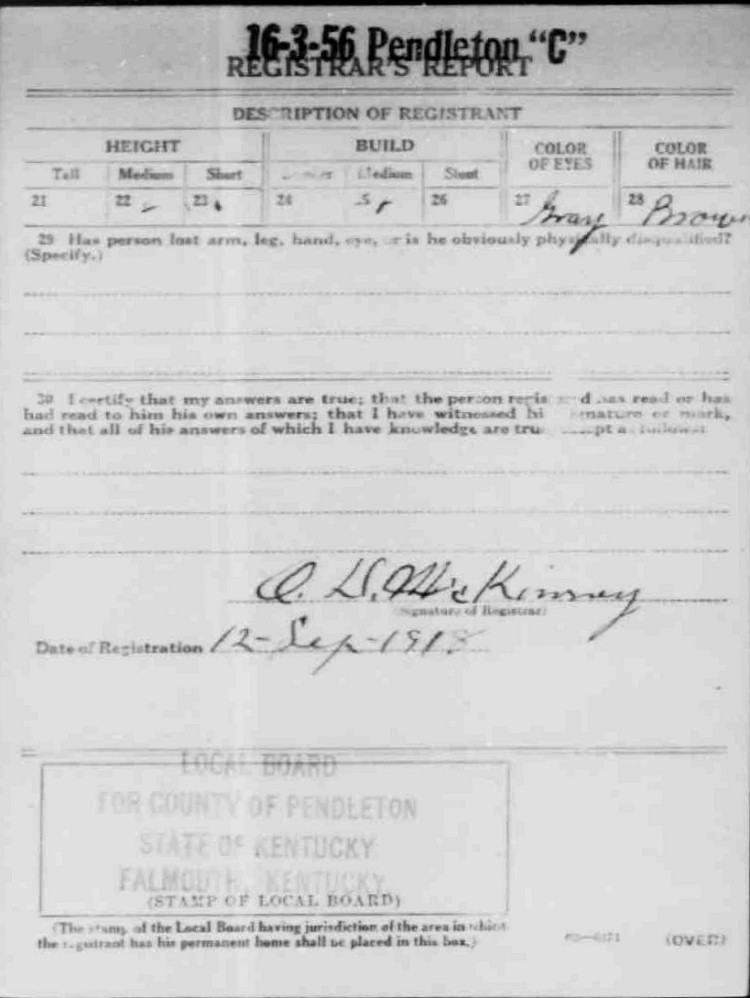 16-3-56 Pendleton "C"
REGISTRAR'S REPORT
DESCRIPTION OF REGISTRANT
HEIGHT BUILD COLOR OF EYES COLOR OF HAIR
Tall Medium Short Medium Stout
21 22 23 24 25 26 27 Gray 28 Brown
29 Has person lost arm, leg, hand, eye, or is he obviously physically disqualified?
(Specify.)
30 I certify that my answers are true; that the person has read or has
had read to him his own answers; that I have witnessed or mark,
and that all of his answers of which I have knowledge are
O. D. McKinney
(Signature of Registrar)
Date of Registration 12-Sep-1918
LOCAL BOARD
FOR COUNTY OF PENDLETON
STATE OF KENTUCKY
FALMOUTH, KENTUCKY.
(STAMP OF LOCAL BOARD)
(The stamp of the Local Board having jurisdiction of the area in which
the registrant has his permanent home shall be placed in this box.)
(OVER)